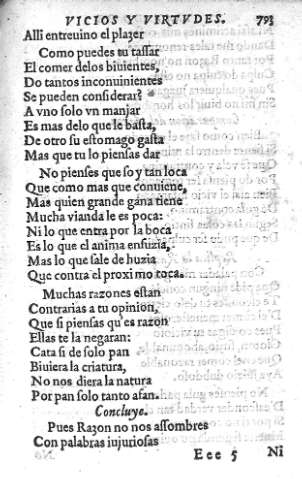 VICIOS Y VIRTVDES. 793
Alli entreuino el plazer
Como puedes tu tassar
El comer delos biuientes,
Do tantos inconuinientes
Se pueden considerar?
A vno solo vn manjar
Es mas delo que le basta,
De otro su estomago gasta
Mas que tu lo piensas dar
No pienses que so y tan loca
Que como mas que conuiene,
Mas quien grande gana tiene
Mucha vianda le es poca:
Ni lo que entra por la boca
Es lo que el anima ensuzia,
Mas lo que sale de huzia
Que contra el proximo toca.
Muchas razones estan
Contrarias a tu opinion,
Que si piensas qu'es razon
Ellas te la negaran:
Cata si de solo pan
Biuiera la criatura,
No nos diera la natura
Por pan solo tanto afan.
Concluye.
Pues Razon no nos assombres
Con palabras iujuriosas
Eee 5 Ni